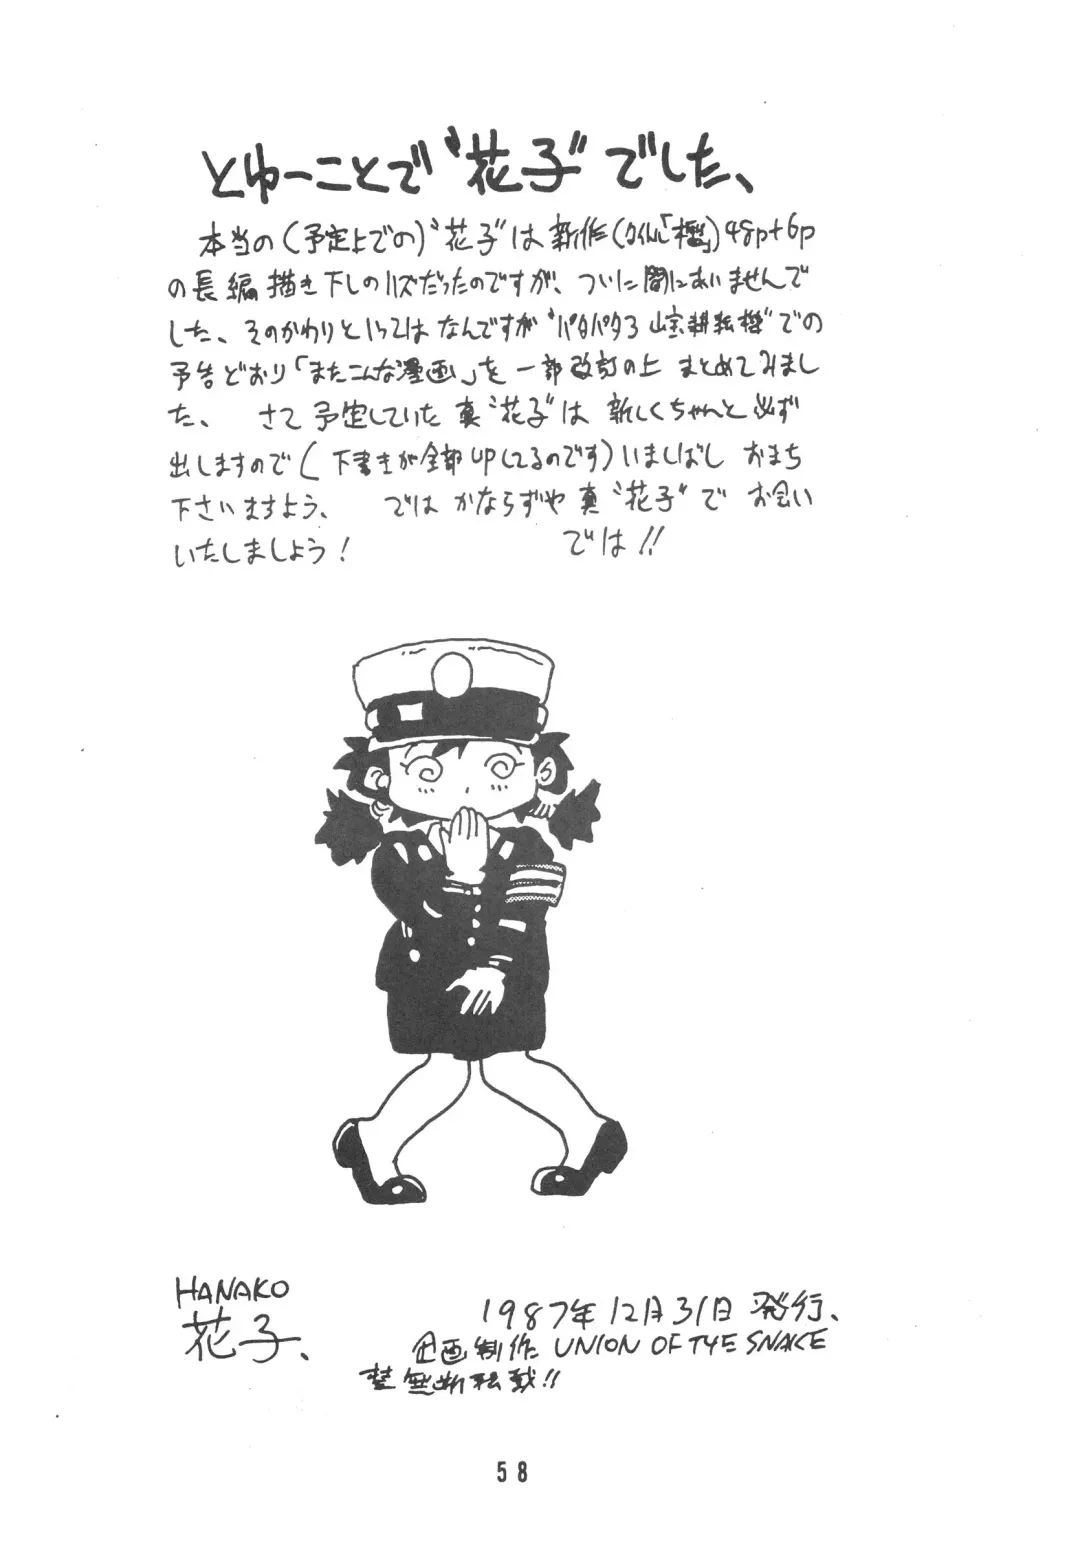 とゆーことで“花子”でした、
本当の(予定上での)“花子”は新作(タイトル「檻」)48p+6p
の長編描き下しのハズだったのですが、ついに間にあいませんで
した、そのかわりといってはなんですが“パタパタ3 山宗耕耘機”での
予告どおり「またこんな漫画」を一部改訂の上まとめてみまし
た、 さて予定していた真“花子”は新しくちゃんと必ず
出しますので(下書きが全部upしてるのです)いましばしおまち
下さいますよう、 ではかならずや真“花子”でお会い
いたしましょう! では!!
HANAKO
花子、
1987年12月31日発行、
企画制作 UNION OF THE SNAKE
禁無断転載!!
58